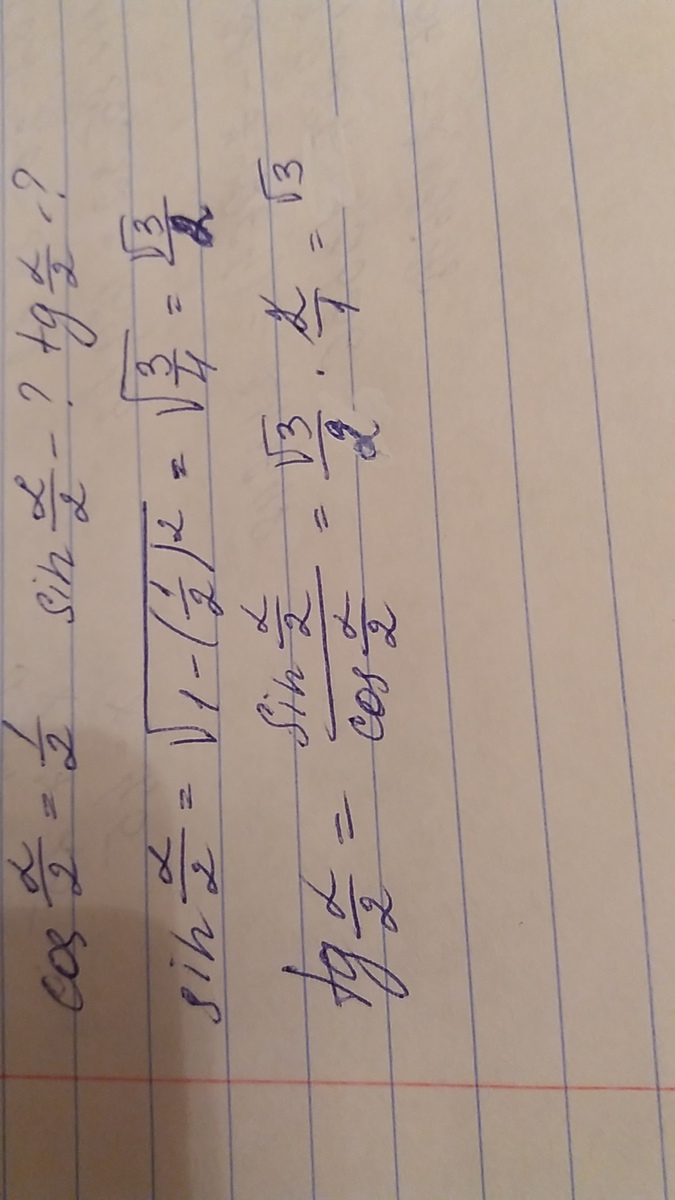 cos α/2 = 1/2 sin α/2 - ? tg α/2 - ?
sin α/2 = √(1-(1/2)²) = √(3/4) = √3/2
tg α/2 = (sin α/2)/(cos α/2) = √3/2 · 2/1 = √3